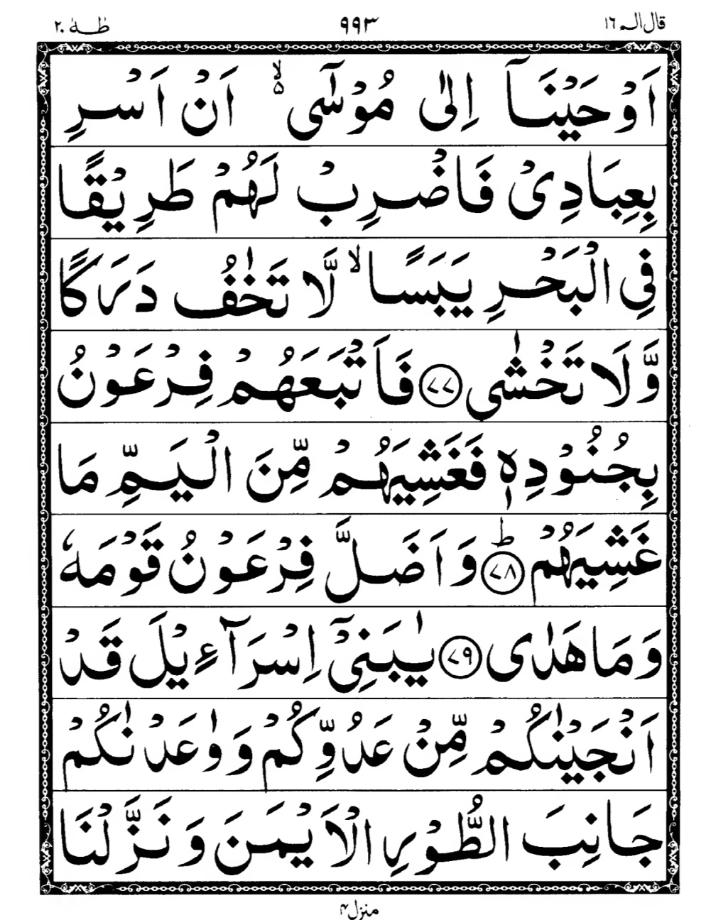 قال الم ١٦ ٩٩٣ طٰهٰ ٢٠
اَوْحَيْنَاۤ اِلٰى مُوْسٰۤى ۙ۬ اَنْ اَسْرِ
بِعِبَادِىْ فَاضْرِبْ لَهُمْ طَرِيْقًا
فِى الْبَحْرِ يَبَسًا ۙ لَّا تَخٰفُ دَرَكًا
وَّلَا تَخْشٰى ﴿٧٧﴾ فَاَتْبَعَهُمْ فِرْعَوْنُ
بِجُنُوْدِهٖ فَغَشِيَهُمْ مِّنَ الْيَمِّ مَا
غَشِيَهُمْ ؕ ﴿٧٨﴾ وَاَضَلَّ فِرْعَوْنُ قَوْمَهٗ
وَمَا هَدٰى ﴿٧٩﴾ يٰبَنِىْۤ اِسْرَآءِيْلَ قَدْ
اَنْجَيْنٰكُمْ مِّنْ عَدُوِّكُمْ وَوٰعَدْنٰكُمْ
جَانِبَ الطُّوْرِ الْاَيْمَنَ وَنَزَّلْنَا
منزل ۴